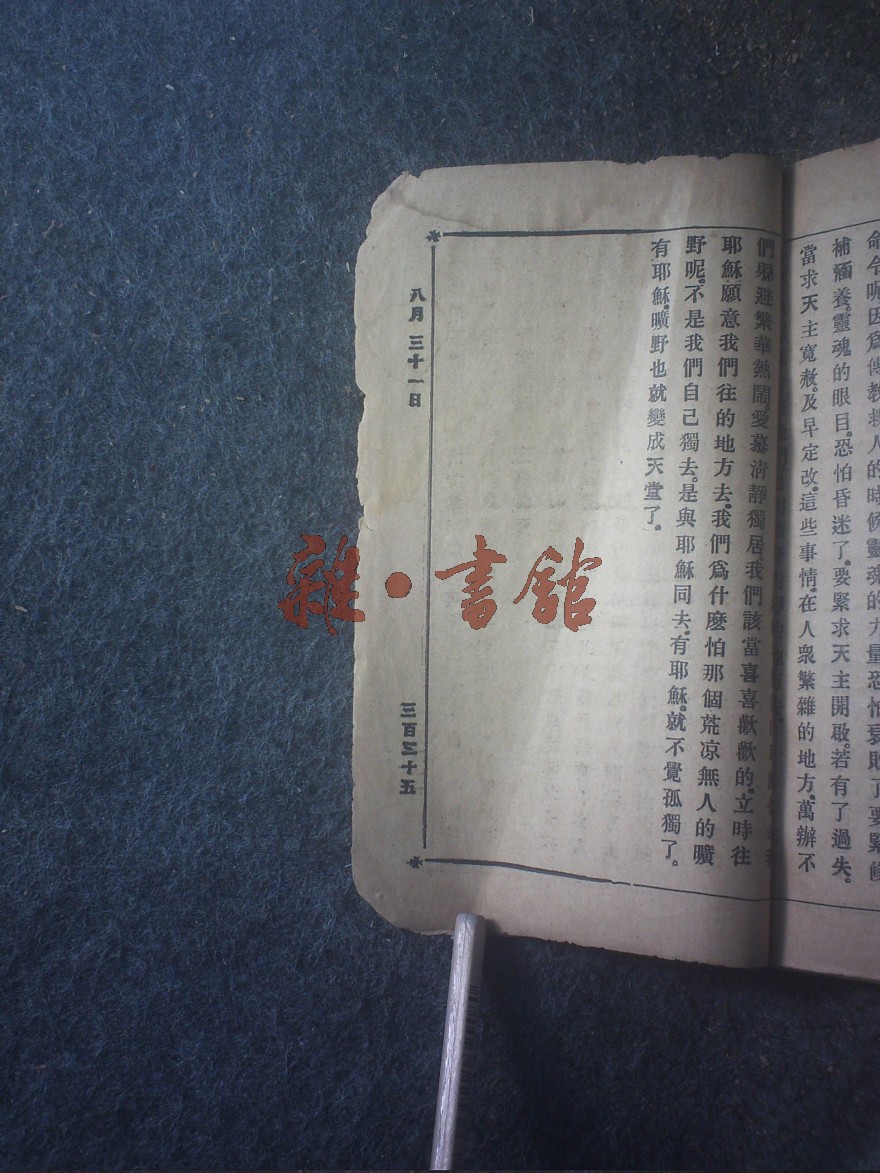 命令呢因爲傳教救人的時候靈魂的力量恐怕衰敗了要緊修
補涵養。靈魂的眼目。恐怕昏迷了。要緊求天主開啟。若有了過失。
當求天主寬赦。及早定改。這些事情。在人衆繁雜的地方。萬辦不
們躲避繁華熱鬧愛慕淸靜獨居我們該當喜喜歡歡的。立時往
耶穌願意我們往的地方去。我們爲什麽怕那個荒凉無人的曠
野呢。不是我們自己獨去。是與耶穌同去。有耶穌。就不覺孤獨了。
有耶穌。曠野也就變成天堂了。
八月 三十一日
三百三十五
雜·書館